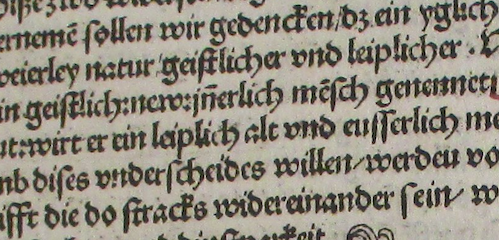 wir gedencken/ dz ein yglich
ernemē sollen wir gedencken/ dz ein yglich
weierley natur/ geistlicher vnd leiplicher.
in geistlich: new: jn̄erlich mēsch genennet
ut: wirt er ein leiplich alt vnd eusserlich me
mb dises vnderscheides willen/ werden vo
ifft die do stracks widereinander sein/ w